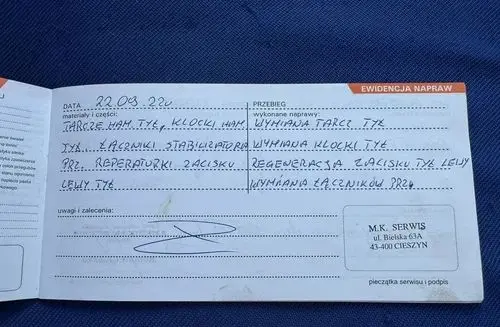 EWIDENCJA NAPRAW
DATA 22.09.22r. PRZEBIEG
materiały i części: wykonane naprawy:
TARCZE HAM. TYŁ, KLOCKI HAM. WYMIANA TARCZ TYŁ
TYŁ. ŁĄCZNIKI STABILIZATORA WYMIANA KLOCKI TYŁ
PRZ. REPERATURKI ZACISKU REGENERACJA ZACISKU TYŁ LEWY
LEWY TYŁ WYMIANA ŁĄCZNIKÓW PRZ.
uwagi i zalecenia:
M.K. SERWIS
ul. Bielska 63A
43-400 CIESZYN
pieczątka serwisu i podpis